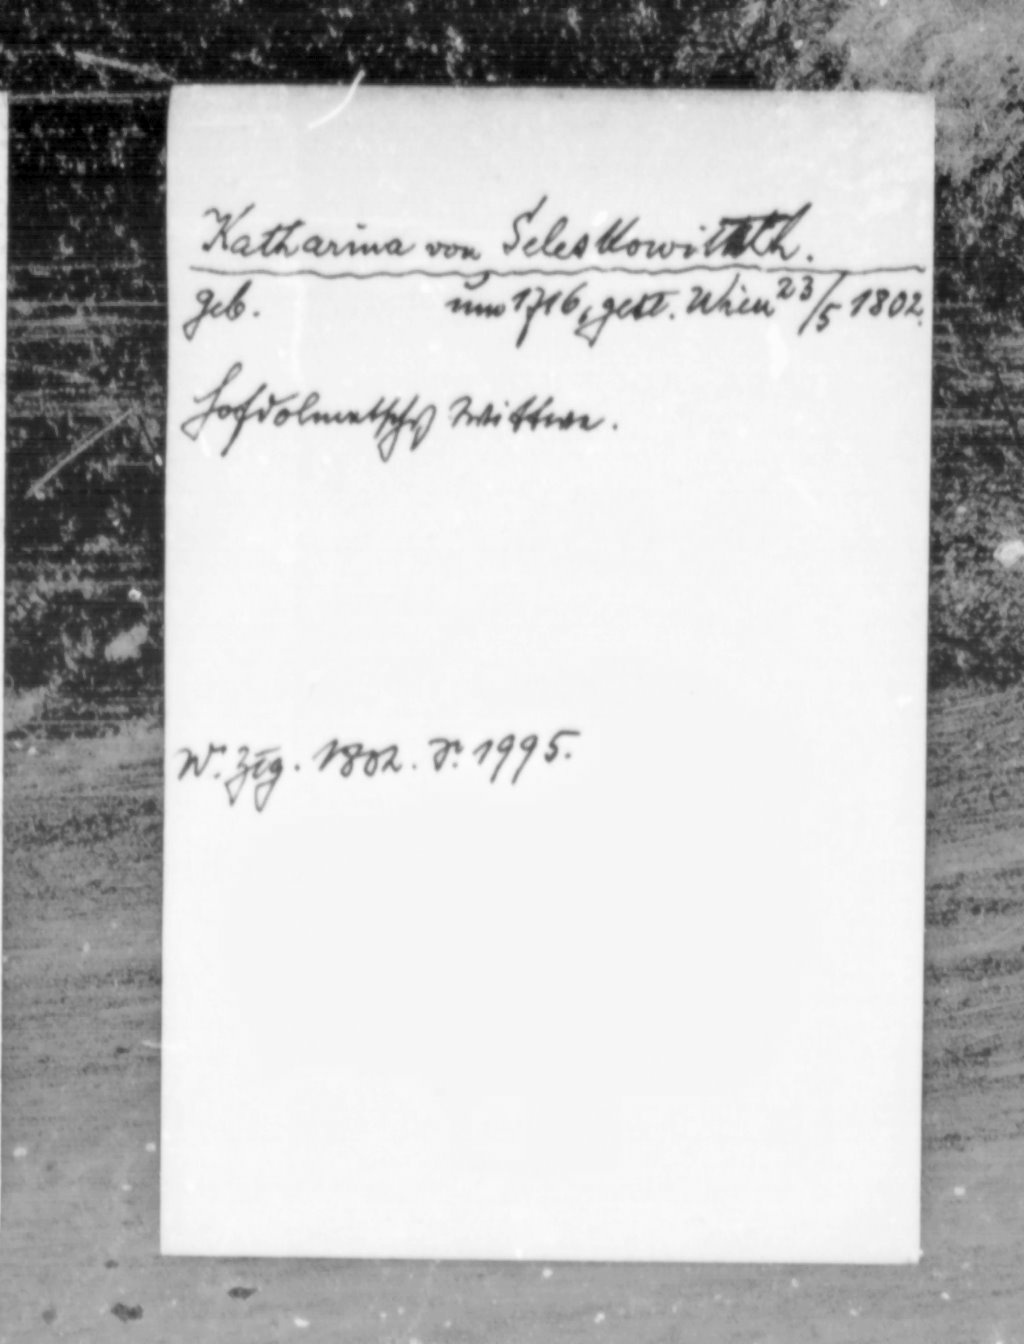 Katharina von Seleskowitsch.
geb. um 1716, gest. Wien 23/5 1802.
Hofdolmetschs Wittwe.
W. Ztg. 1802. S. 1995.